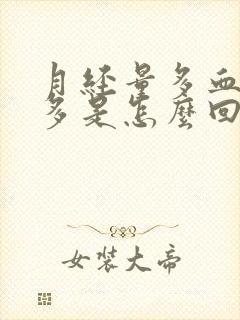 月經量多血
多是怎麼回
女裝大帝